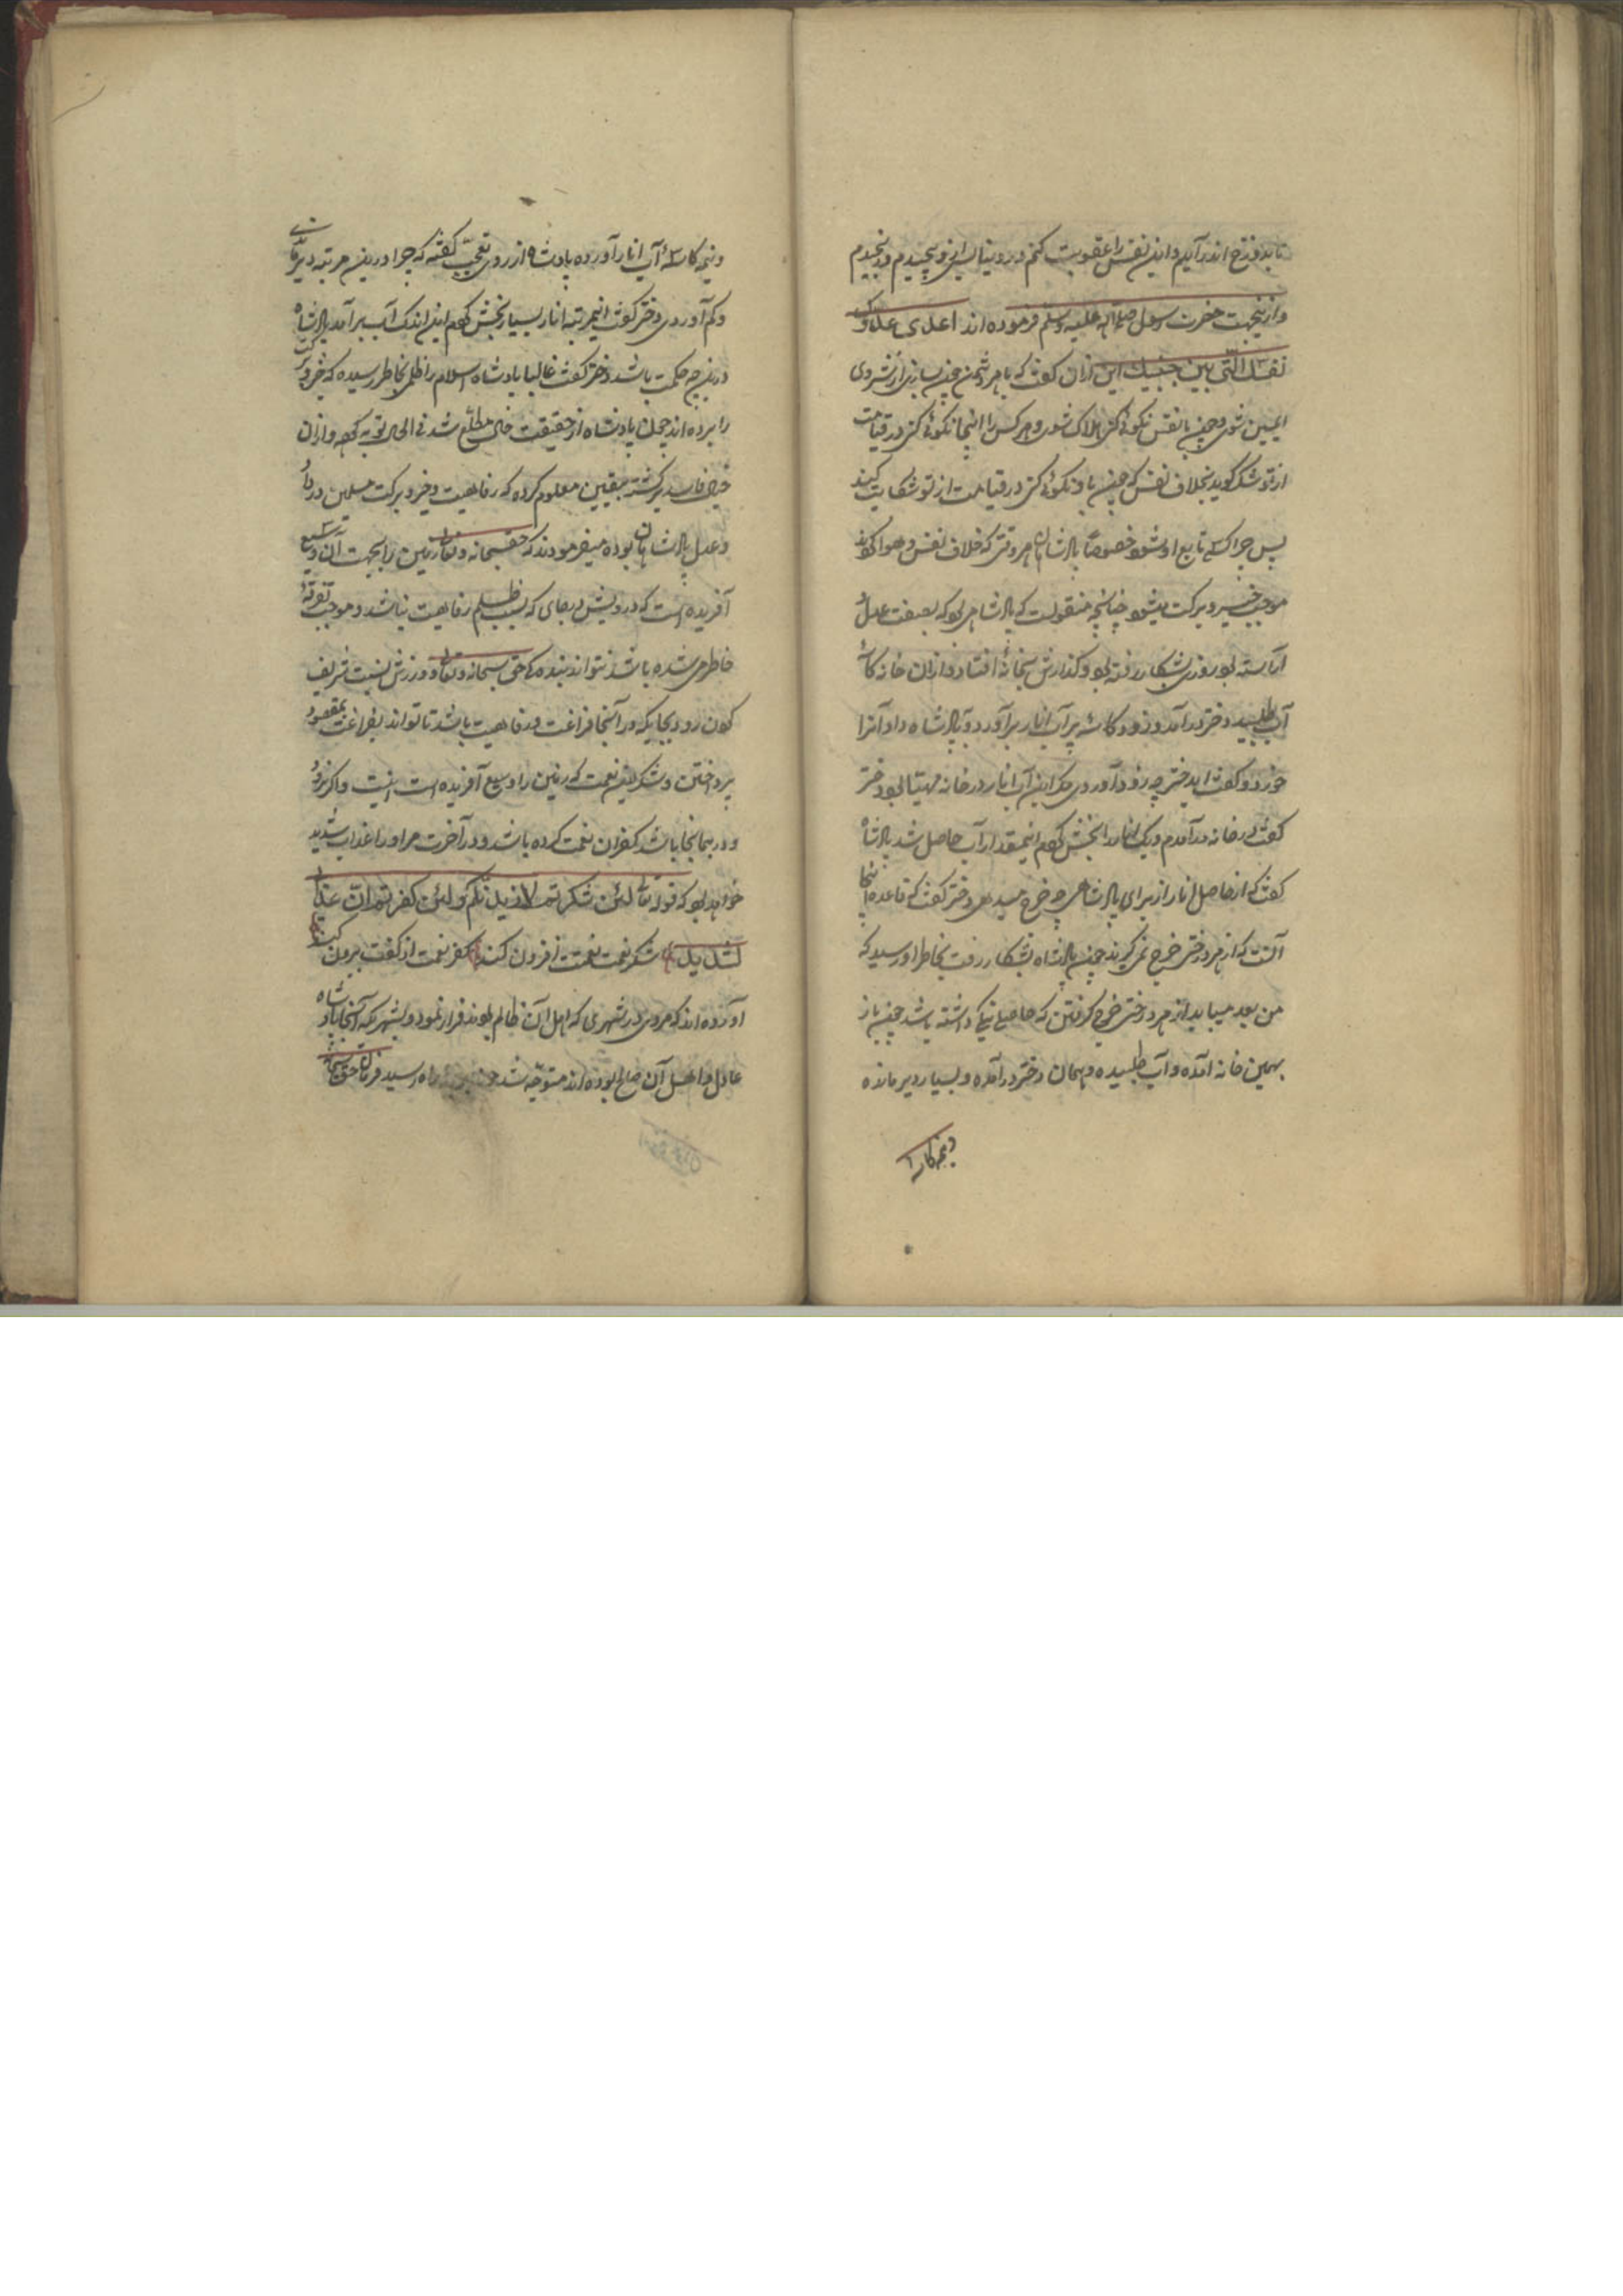 تا بدوزخ اندر آیم و این نفس را عقوبت کنم در دنیا
وازینجهت حضرت رسول صلی الله علیه وسلم فرموده اند اعدی عدوک
نفسک التی بین جنبیک این ازان گفت که باهر دشمن چون بسازی از شر وی
ایمن شوی و چون با نفس نکوئی کنی هلاک شوی و هر کس را اینجا نکوئی کنی در قیامت
از تو شکر گوید بخلاف نفس که چون باو نکوئی کنی در قیامت از تو شکایت کند
پس چرا کسی تابع او شود خصوصاً پادشاهان هر وقتی که خلاف نفس و هوا کنند
موجب خیر و برکت میشود چنانچه منقولست که پادشاهی بود که بصفت عدل
آراسته بود روزی بشکار رفته بود و گذارش بخانهٔ افتاد و ازان خانه کاسهٔ
آب طلبید دختر درآمد و زود کاسه پر آب انار برآورد و بپادشاه داد آنرا
خورد و گفت ایدختر چه زود آوردی مگر این آب انار در خانه مهیا بود دختر
گفت در خانه درآمدم و یک انار را بخش کردم اینمقدار آب حاصل شد پادشاه
گفت که از حاصل انار از برای پادشاهی چه خرج میدهی دختر گفت که قاعدهٔ اینجا
آنست که از هر درختی خرج نمیگیرند چون پادشاه بشکار رفت بخاطر او رسید که
من بعد میباید از هر درختی خرج گرفتن که حاصلی نیکی داشته باشد چون باز
بهمین خانه آمده و آب طلبیده و همان دختر درآمده و بسیار دیر مانده
ونیمه کاسه
ونیمه کاسهٔ آب انار آورده پادشاه از روی تعجب گفته که چرا درین مرتبه دیر ماندی
وکم آوردی دختر گفت اینمرتبه انار بسیار بخش کردم این اندک آب برآمد پادشاه گفت
درین چه حکمت باشد دختر گفت غالبا پادشاه اسلام را ظلمی بخاطر رسیده که خیر و برکت
را برده اند چون پادشاه از حقیقت حال مطلع شد فی الحال توبه کرد و ازان
خیال فاسد برگشته بیقین معلوم کرده که رفاهیت و خیر و برکت مسلمین در داد
وعدل پادشاهان بوده میفرمودند که حق سبحانه وتعالی زمین را بجهت آن وسیع
آفریده است که درویش در جای که بسبب ظلم رفاهیت نباشد و موجب تفرقهٔ
خاطر می شده باشد نتواند بندهٔ حق سبحانه وتعالی و ورزش نسبت شریف
کردن رود بجاییکه در آنجا فراغت و رفاهیت باشد تا تواند بفراغت بمقصود
پرداختن و شکر این نعمت که زمین را وسیع آفریده است اینست و اگر نرود
و در همانجا باشد کفران نعمت کرده باشد و در آخرت مر او را عذاب شدید
خواهد بود که قوله تعالی لئن شکرتم لازیدنکم ولئن کفرتم ان عذابی
لشدید شکر نعمت نعمتت افزون کند کفر نعمت از کفت بیرون کند
آورده اند که مردی در شهری که اهل آن ظالم بودند فرار نمود و بشهریکه آنجا پادشاه
عادل و اهل آن صالح بوده اند متوجه شد چون راه رسید فرمان حق سبحانه